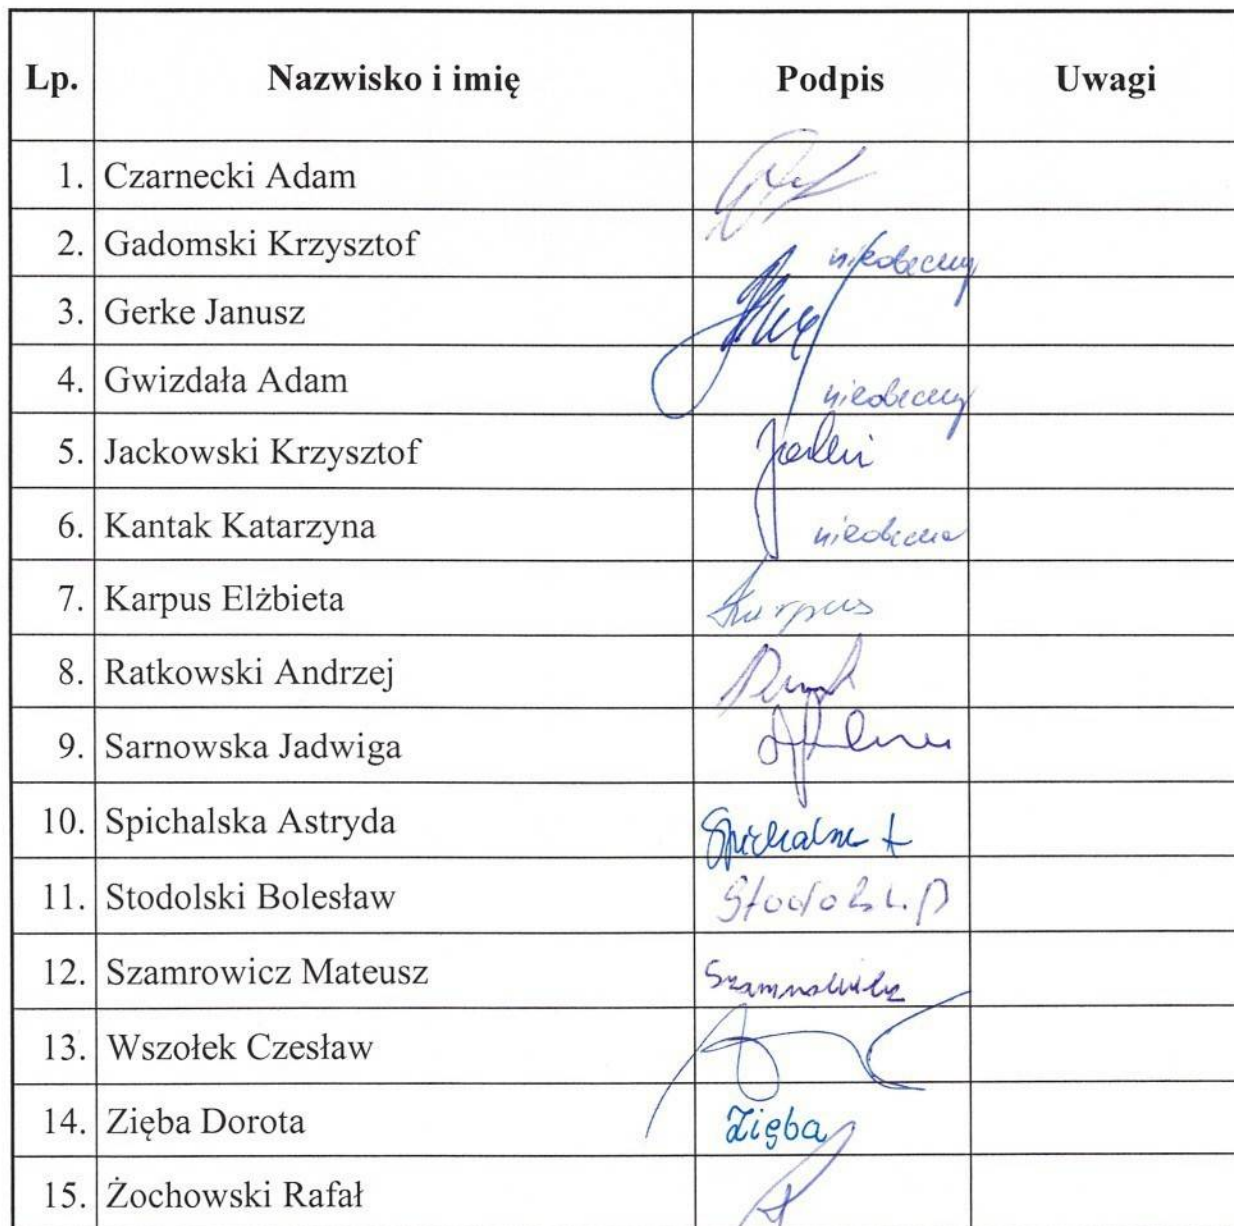 Lp. Nazwisko i imię Podpis Uwagi
1. Czarnecki Adam
2. Gadomski Krzysztof nieobecny
3. Gerke Janusz
4. Gwizdała Adam nieobecny
5. Jackowski Krzysztof
6. Kantak Katarzyna nieobecna
7. Karpus Elżbieta Karpus
8. Ratkowski Andrzej
9. Sarnowska Jadwiga
10. Spichalska Astryda
11. Stodolski Bolesław
12. Szamrowicz Mateusz
13. Wszołek Czesław
14. Zięba Dorota Zięba
15. Żochowski Rafał